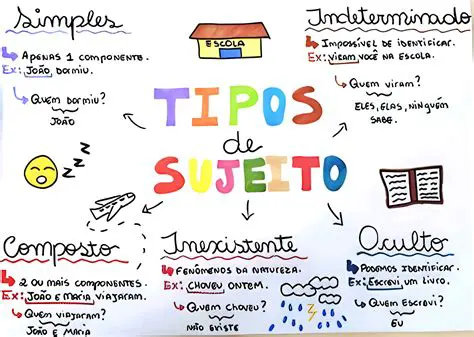 Simples
Apenas 1 componente.
Ex: João dormiu.
Quem dormiu?
João
ESCOLA
Indeterminado
Impossível de identificar.
Ex: Viram você na escola.
Quem viram?
Eles, elas, ninguém
sabe.
TIPOS
de
SUJEITO
z z z
Composto
2 ou mais componentes.
Ex: João e Maria viajaram.
Quem viajaram?
João e Maria
Inexistente
Fenômenos da natureza.
Ex: Choveu ontem.
Quem choveu?
Não existe
Oculto
Podemos identificar.
Ex: Escrevi um livro.
Quem escrevi?
Eu